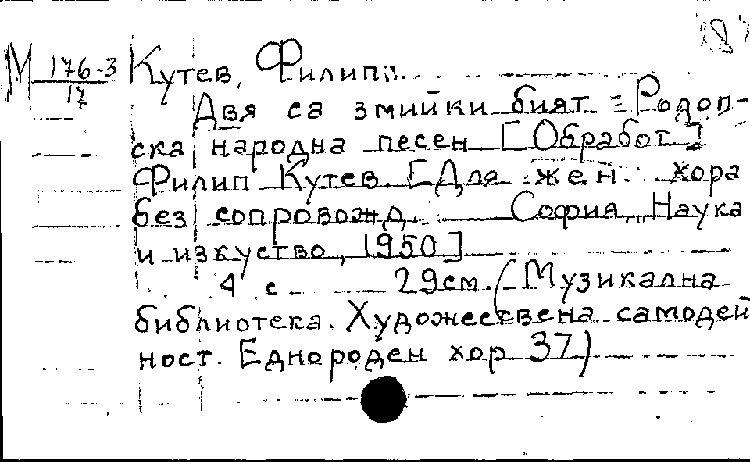 М 176-3/17 Кутев, Филип.
Двя са змийки бият = Родоп-
ска народна песен [Обработ.]
Филип Кутев. [Для жен. хора
без сопровожд. София, "Наука
и изкуство, 1950]
4 с 29см. (Музикална
библиотека. Художествена самодей
ност. Еднороден хор 37)